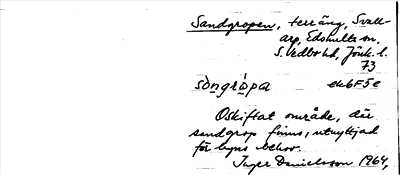 Sandgropen, terräng, Svall-
arp, Edshults sn,
S. Vedbo hd, Jönk. l.
73
sòngrò̠pa ek6F5e
Oskiftat område, där
sandgrop finns, utnyttjad
för byns behov.
Inger Danielsson 1964,